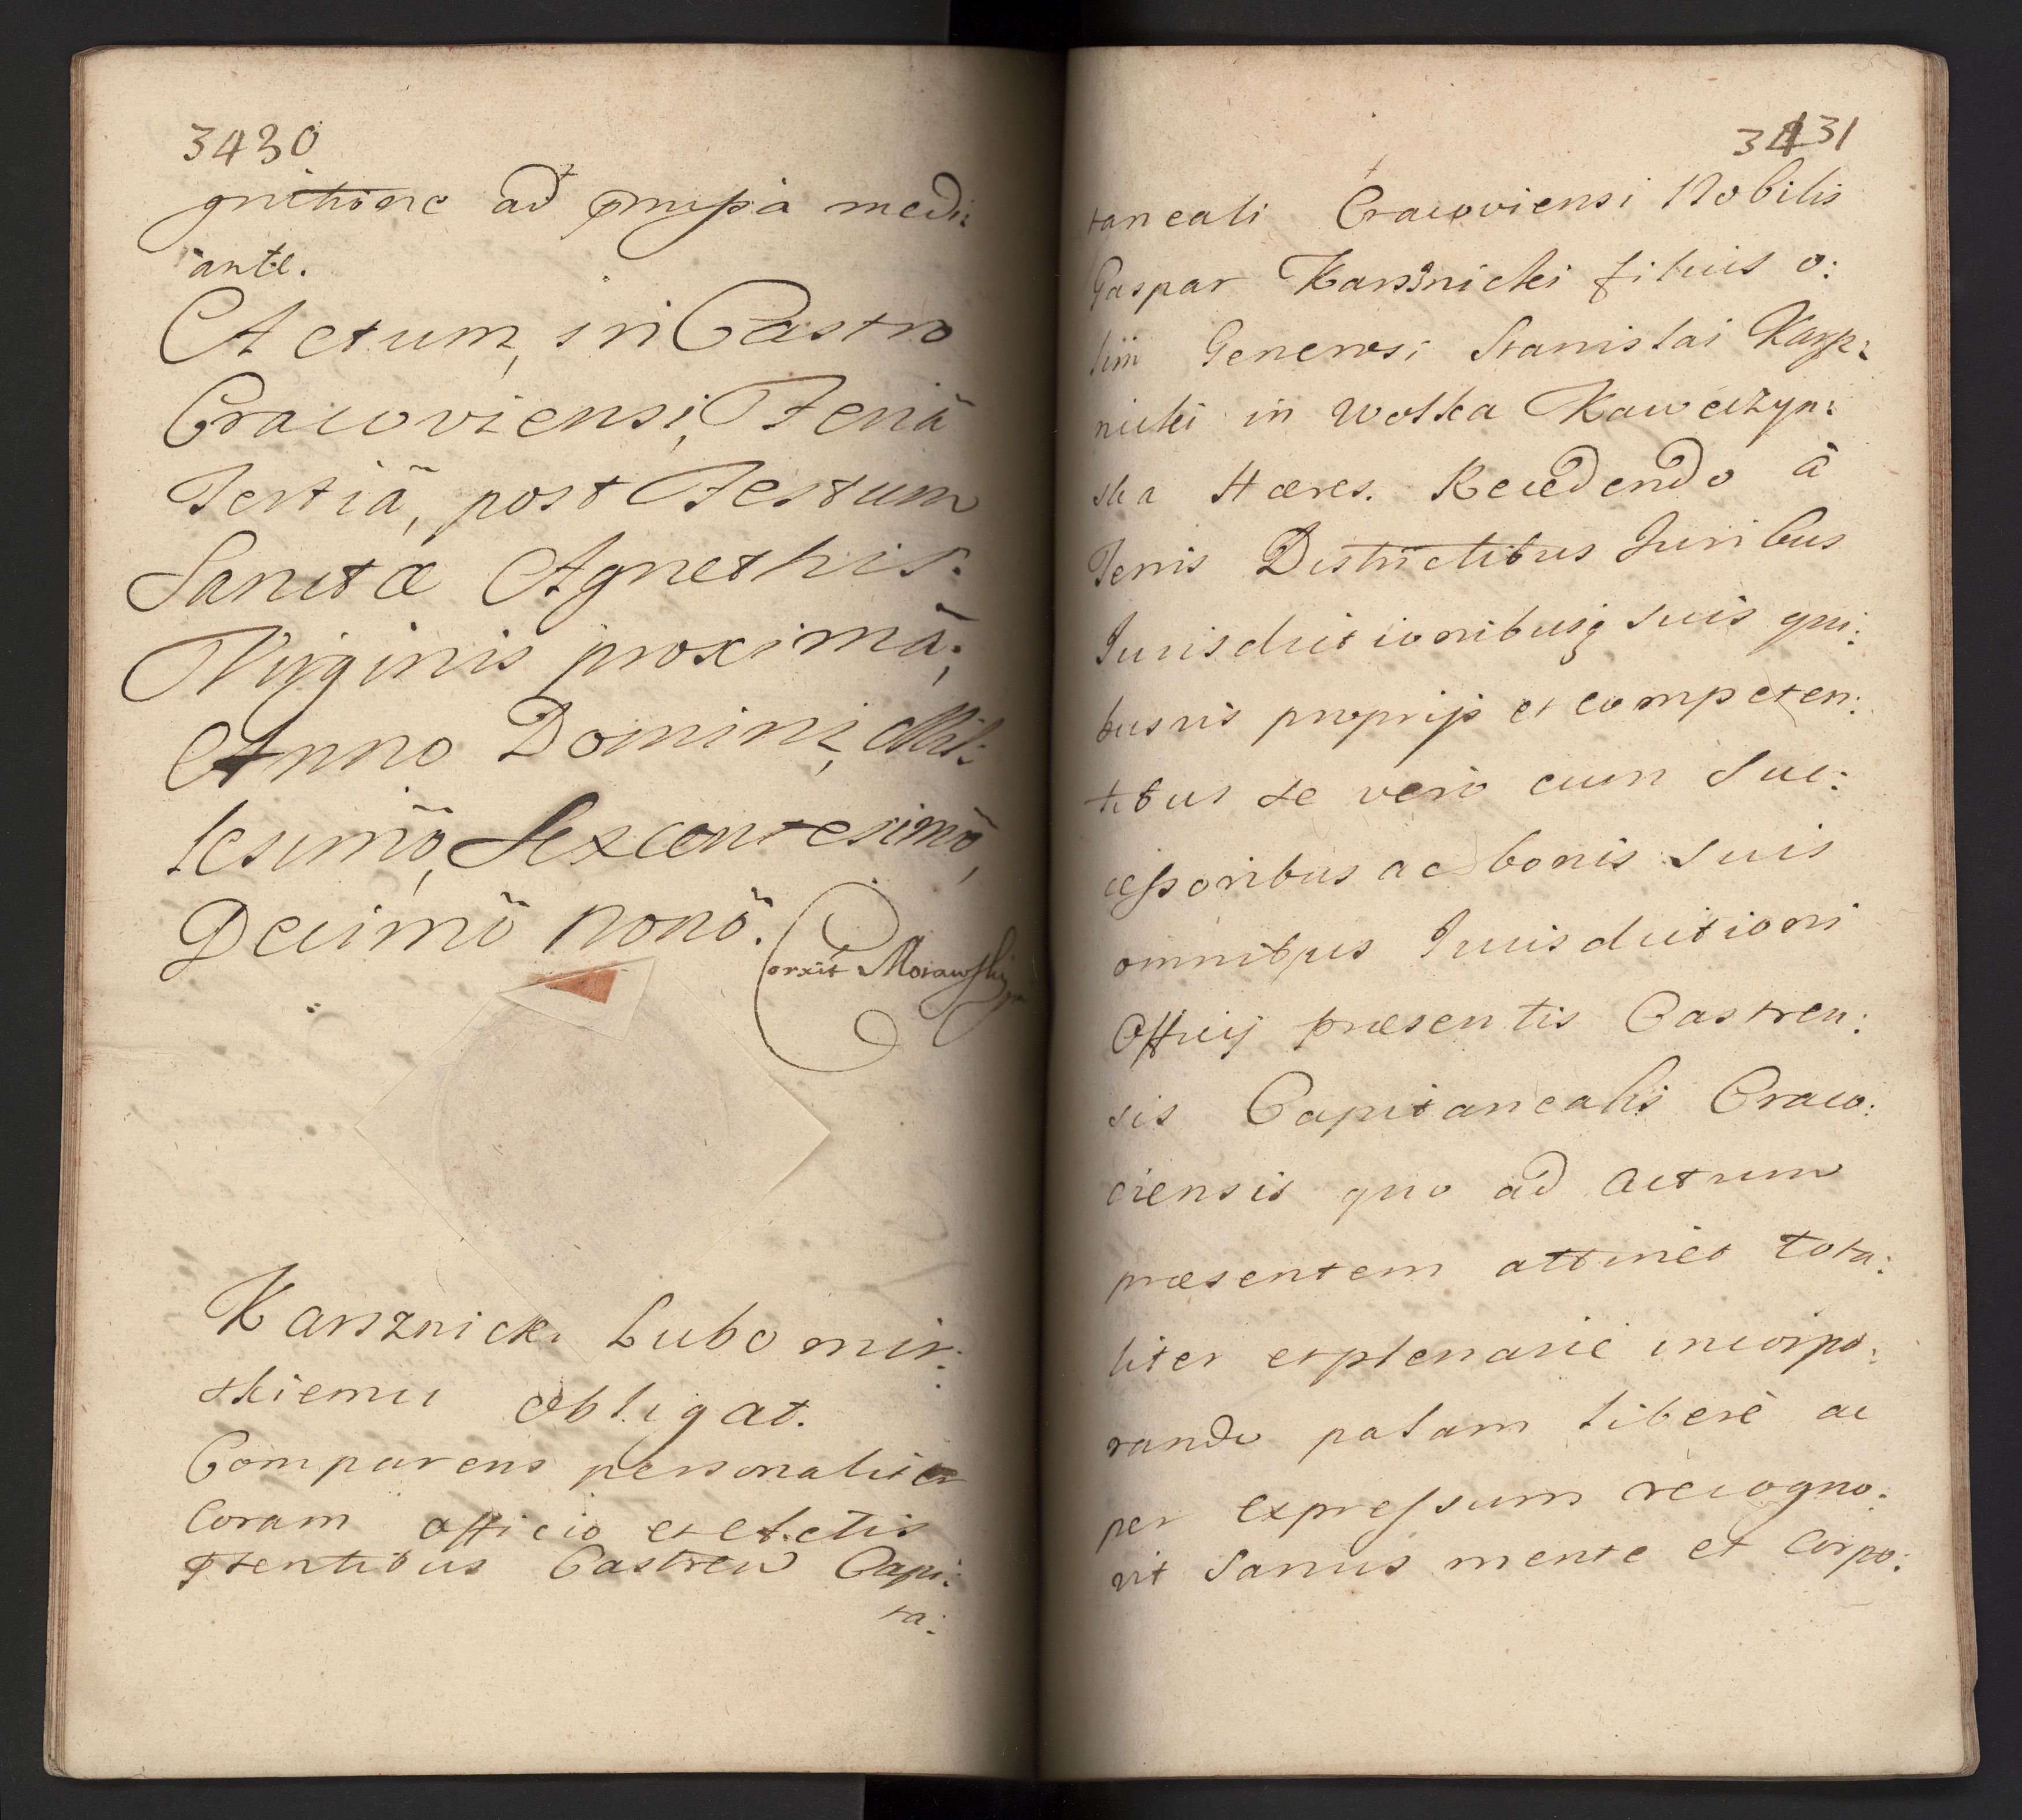 3430
gnitione ad præmissa medi:
ante.
Actum, in Castro
Cracoviensi, Feriâ
Tertiâ, post Festum
Sanctæ Agnethis:
Virginis proximâ;
Anno Domini, Mil:
lesimõ, Sexcentesimõ,
Decimõ nonõ.
Corxit Morawski
Karsznicki Lubomir:
skiemu obligat.
Comparens personaliter
Coram officio et Actis
pñtentibus Castren Capi:
ta:
3431
taneali Cracoviensi Nobilis
Gaspar Karsznicki filius o:
lim Generosi Stanislai Karsz:
nicki in Wolka Kawczyn:
ska Hæres. Recedendo â
Terris Districtibus Juribus
Jurisdictionibusq suis qui:
busvis proprijs et competen:
tibus se vero cum Suc:
cessoribus ac bonis suis
omnibus Jurisdictioni
Officij præsentis Castren:
sis Capitanealis Craco:
viensis quo ad Actum
præsentem attinet tota:
liter et plenarie incorpo:
rando palam liberè ac
per expressum recogno:
vit Sanus mente et Corpo: